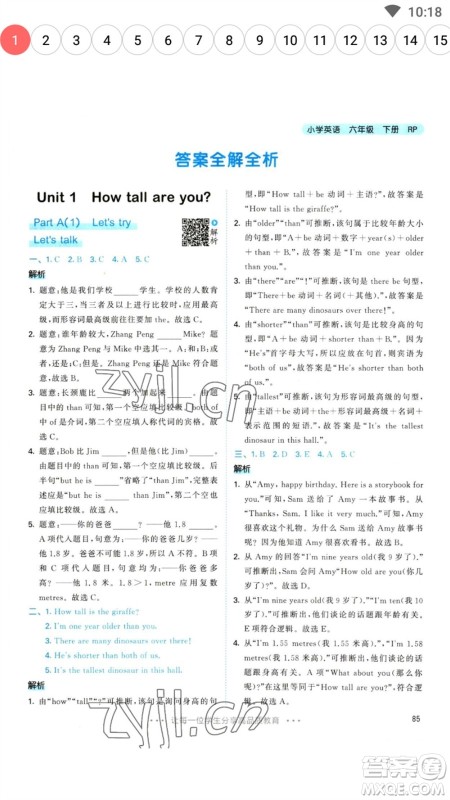 10:18
1 2 3 4 5 6 7 8 9 10 11 12 13 14 15
小学英语 六年级 下册 RP
答案全解全析
Unit 1 How tall are you?
Part A(1) Let's try
Let's talk
解析
一、1. C 2. B 3. C 4. A 5. C
解析
1. 题意:他是我们学校______学生。学校的人数肯
定大于三,当三者及以上进行比较时,应用最高
级,而形容词最高级前往往有 the。故选 C。
2. 题意:谁年龄较大,Zhang Peng ______ Mike?
Zhang Peng 与 Mike 中选一。A:和;B:或
者;C:但是。Zhang Peng 或者 Mike 符合题
意。故选 B。
3. 题意:长颈鹿比______两个加起来______。由
题目中的 than 可知,第一个空应填比较级,由
than 可知,第二个空应填人称代词的宾格。故
选 C。
4. 题意:Bob 比 Jim______,但是______Jim______。
由题目中的 than 可知,第一个空应填比较级,完整
表述应是“but he is ______ than Jim”,省略了“than
Jim”,故还应是“heavier”,因此,第二个空也
应填比较级。故选 A。
5. 题意:——你的爸爸______? ——他 1.8 ______。
A 项代入题目,句意为“——你的爸爸几岁?
——他 1.8 岁。”不符合题意。B、C 两项代入题
目,句意为“——你的爸爸多高? ——他 1.8
米。”符合题意。1.8 米,metre 应用复数
metres。故选 C。
二、1. How tall is the giraffe?
2. I'm one year older than you.
3. There are many dinosaurs over there!
4. He's shorter than both of us.
5. It's the tallest dinosaur in this hall.
解析
1. 由“how”“tall”“?”可推断,该句是询问身高的句
型,即“How tall+be 动词+主语?”,故答案是
“How tall is the giraffe?”。
2. 由“older”“than”可推断,该句属于比较年龄大小
的句型,即“A+be 动词+数字+year(s)+older
+than+B.”,故答案是“I'm one year older
than you.”。
3. 由“there”“are”“!”可推断,该句是感叹句,句型
即“There+be 动词+名词+其他!”,故答案是
“There are many dinosaurs over there!”。
4. 由“shorter”“than”可推断,该句是比较身高的句
型,即“A+be 动词+shorter+than+B.”。因
为“He's”首字母大写,所以应放在句首,宾语是
“both of us”,故答案是“He's shorter than
both of us.”。
5. 由“tallest”可推断,该句属于形容词最高级的句
型,即“主语+be 动词+the+tallest+名词+
表示范围的短语.”,故答案是“It's the tallest
dinosaur in this hall.”。
三、1. B 2. D 3. E 4. A 5. C
解析
1. 从“Amy, happy birthday. Here is a storybook for
you.”可知,Sam 送给了 Amy 一本故事书。从
“Thanks, Sam. I like it very much.”可知,Amy
很喜欢这个礼物。为什么 Sam 送给 Amy 故事书
呢?因为 Amy 喜欢读故事书。故选 B。
2. 从 Amy 的回答“I'm nine years old(我 9 岁了)。”
可推断出,Sam 问了 Amy 的年龄。故选 D。
3. 从“I'm nine years old(我 9 岁了)”“I'm ten(我
10 岁了)”可推断出,他们谈论的话题跟年龄及
年龄大小有关。故选 E。
4. 从“I'm 1.55 metres(我 1.55 米高)。”“I'm
1.58 metres(我 1.58 米高)。”可推断出,A 项
“What about you(那你呢)?”符合题意。故
选 A。
5. 从“I'm 1.55 metres(我 1.55 米高)。”“I'm
1.58 metres(我 1.58 米高)。”可推断出,他们
谈论的话题跟身高及身高比较有关。故选 C。
让每一位学生分享高品质教育
85
zyjl.cn
zyjl.cn
答案圈
MXQE.COM